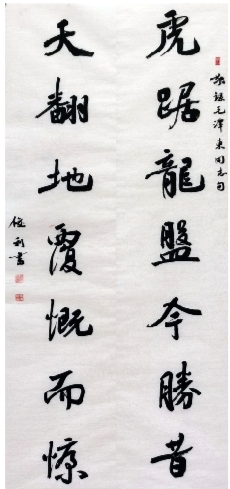 敬録毛澤東同志句
虎踞龍盤今勝昔
天翻地覆慨而慷
俊利書